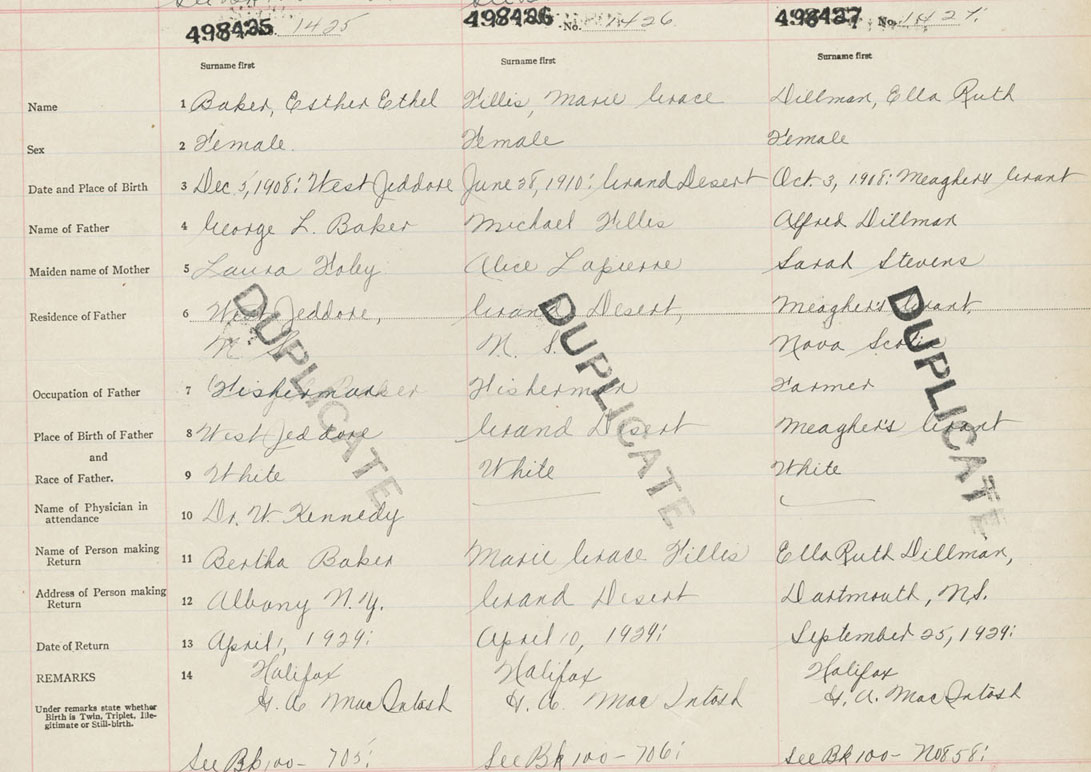 498425 1425 498426 No. 1426 498427 No. 1427
Surname first Surname first Surname first
Name 1 Baker, Esther Ethel Hillis, Marie Grace Dillman, Ella Ruth
Sex 2 Female. Female Female
Date and Place of Birth 3 Dec 5, 1908: West Jeddore June 28, 1910: Grand Desert Oct. 3, 1908: Meaghers Grant
Name of Father 4 George L. Baker Michael Hillis Alfred Dillman
Maiden name of Mother 5 Laura Alice Lapierre Sarah Stevens
Residence of Father 6 West Jeddore, Grand Desert, Meagher's Grant,
N. S. N. S. Nova Scotia
Occupation of Father 7 Fisherman Fisherman Farmer
Place of Birth of Father 8 West Jeddore Grand Desert Meagher's Grant
and
Race of Father. 9 White White White
Name of Physician in
attendance 10 Dr. W. Kennedy
Name of Person making
Return 11 Bertha Baker Marie Grace Hillis Ella Ruth Dillman,
Address of Person making
Return 12 Albany N.Y. Grand Desert Dartmouth, N.S.
Date of Return 13 April 1, 1929: April 10, 1929: September 25, 1929:
REMARKS 14 Halifax Halifax Halifax
H. A. MacIntosh H. A. MacIntosh H. A. MacIntosh
Under remarks state whether
Birth is Twin, Triplet, Ille-
gitimate or Still-birth.
See Bk 100- 705: See Bk 100- 706: See Bk 100- No 858:
DUPLICATE DUPLICATE DUPLICATE